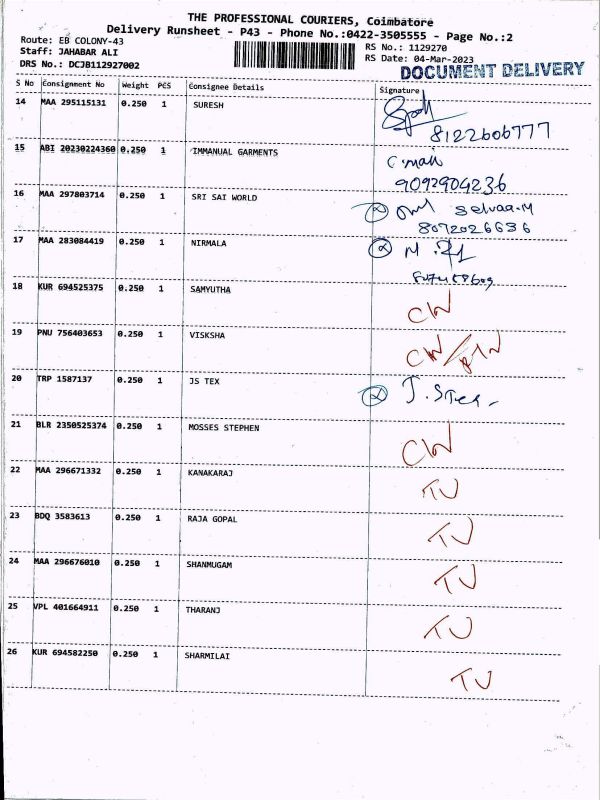 THE PROFESSIONAL COURIERS, Coimbatore
Delivery Runsheet - P43 - Phone No.:0422-3505555 - Page No.:2
Route: EB COLONY-43 RS No.: 1129270
Staff: JAHABAR ALI RS Date: 04-Mar-2023
DRS No.: DCJB112927002 DOCUMENT DELIVERY
S No Consignment No Weight PCS Consignee Details Signature
14 MAA 295115131 0.250 1 SURESH
8122606777
15 ABI 20230224360 0.250 1 IMMANUAL GARMENTS
9092904236
16 MAA 297803714 0.250 1 SRI SAI WORLD Selvaa.M
8072026636
17 MAA 283084419 0.250 1 NIRMALA
18 KUR 694525375 0.250 1 SAMYUTHA CW
19 PNU 756403653 0.250 1 VISKSHA CW
20 TRP 1587137 0.250 1 JS TEX
21 BLR 2350525374 0.250 1 MOSSES STEPHEN CW
22 MAA 296671332 0.250 1 KANAKARAJ TU
23 BDQ 3583613 0.250 1 RAJA GOPAL TU
24 MAA 296676010 0.250 1 SHANMUGAM TU
25 VPL 401664911 0.250 1 THARANJ TU
26 KUR 694582250 0.250 1 SHARMILAI TU